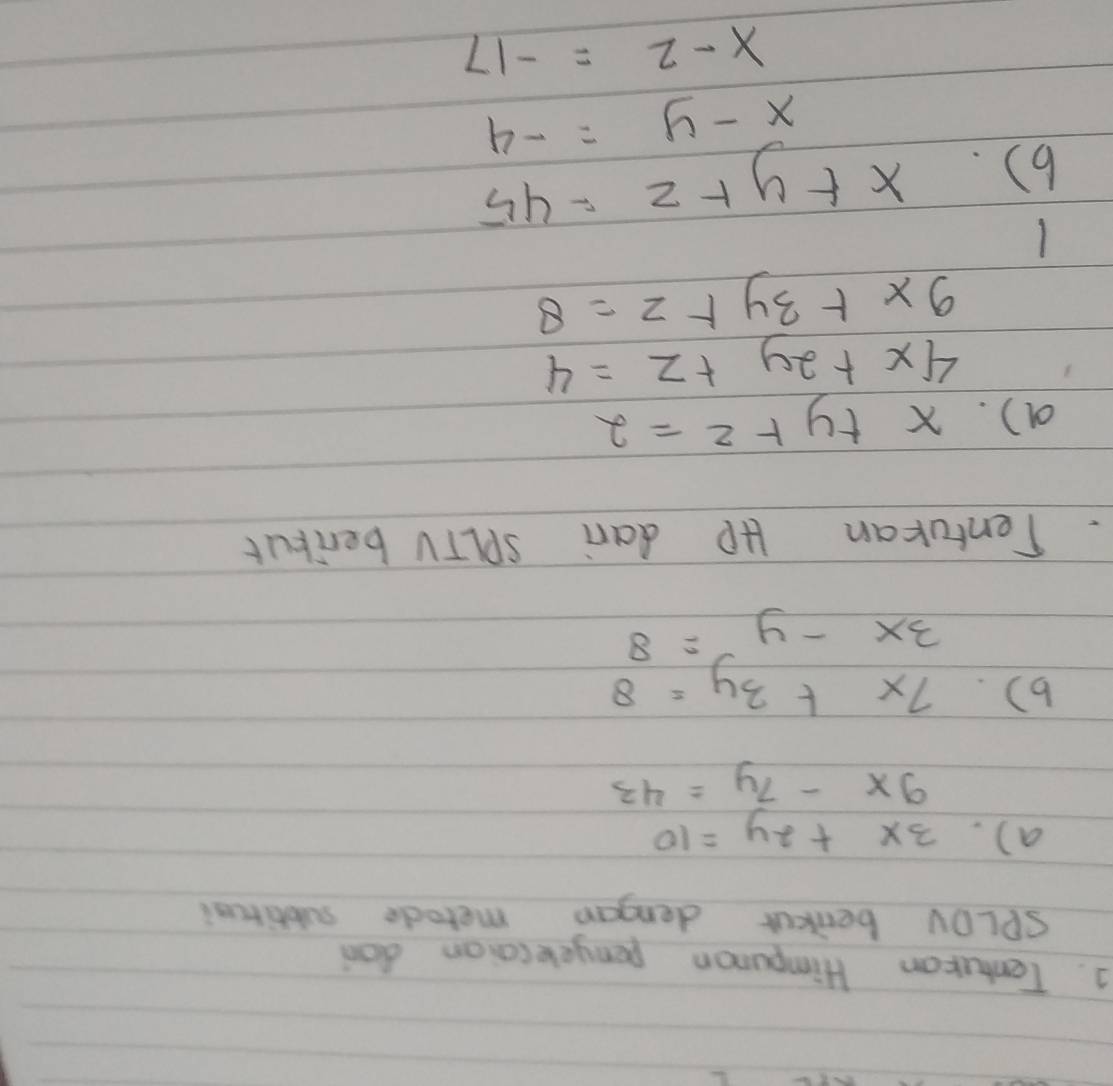 1. Tentukan Himpunan penyelesaian dari
SPLDV berikut dengan metode subtitusi
a). 3x + 2y = 10
9x - 7y = 43
b). 7x + 3y = 8
3x - y = 8
. Tentukan HP dari SPLTV berikut
a). x + y + z = 2
4x + 2y + z = 4
9x + 3y + z = 8
b). x + y + z = 45
x - y = -4
x - z = -17